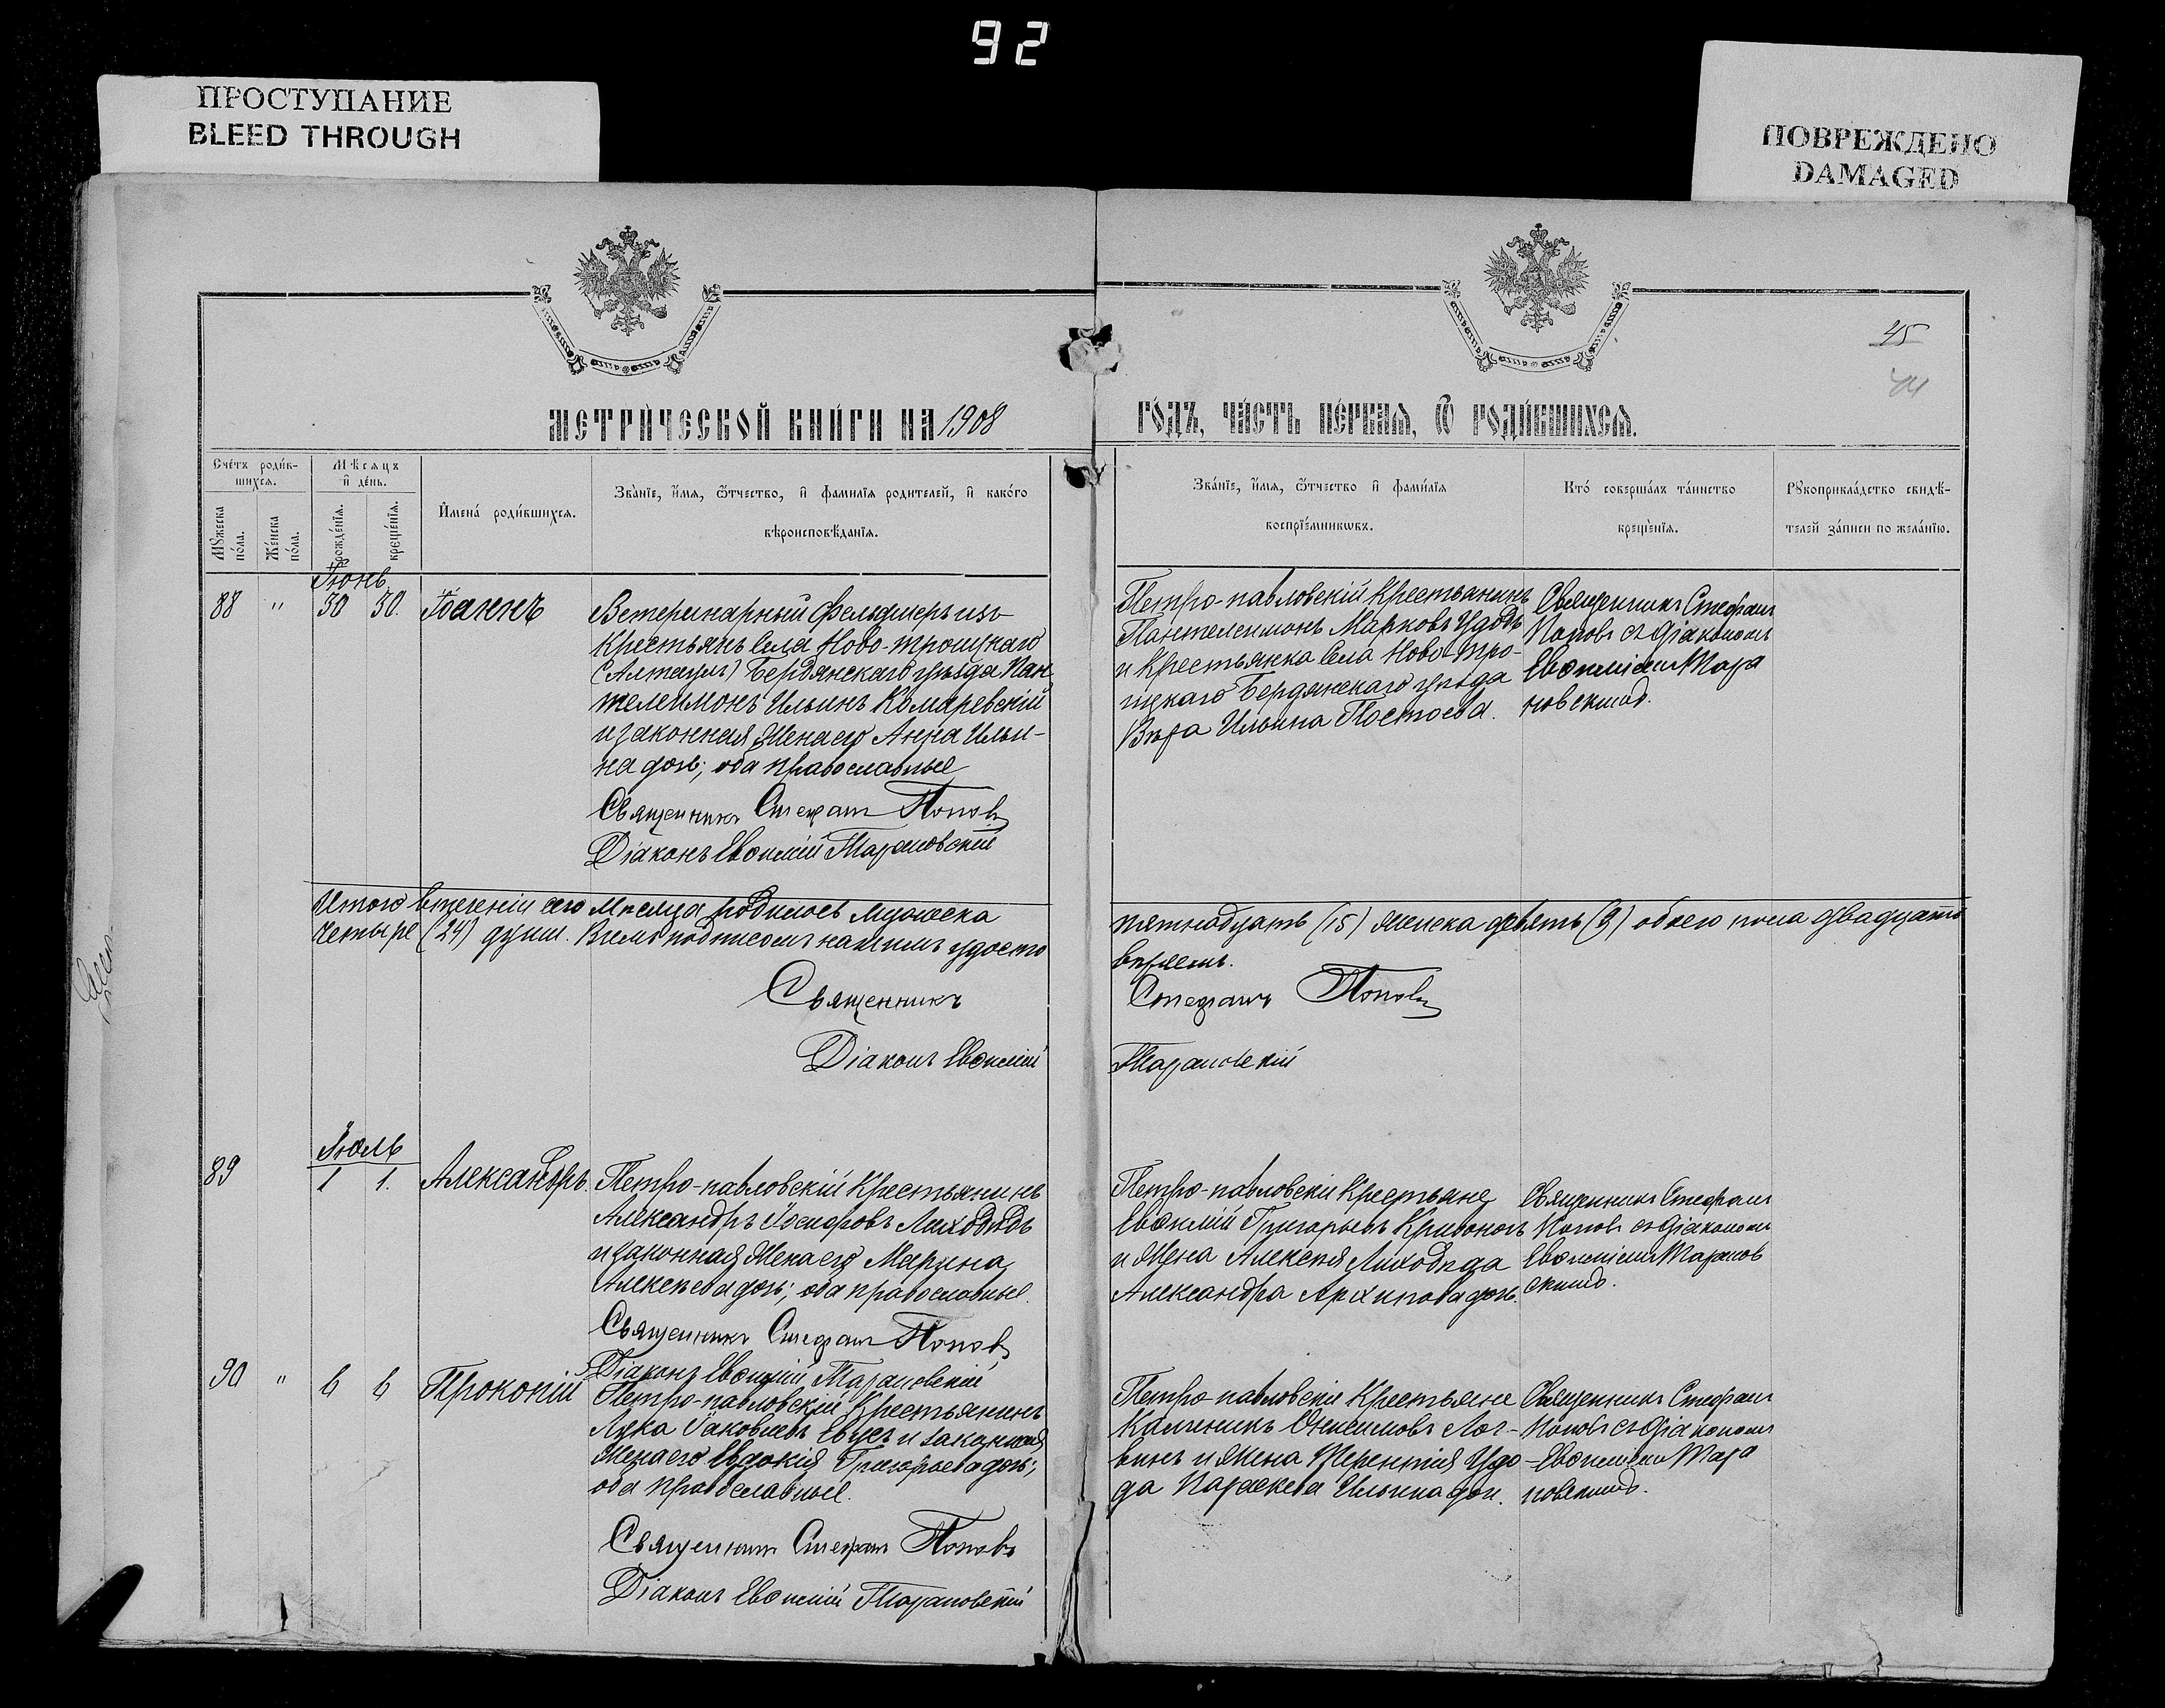 92
ПРОСТУПАНИЕ
BLEED THROUGH
ПОВРЕЖДЕНО
DAMAGED
45
44
МЕТРИ́ЧЕСКОЙ КНИ́ГИ НА 1908
ГО́ДЪ, ЧА́СТЬ ПЕ́РВАЯ, Ѿ РОДИ́ВШИХСЯ.
Сче́тъ роди́в-
шихся.
Мѣсяцъ
и҆ де́нь.
Мꙋжеска
по́ла.
Же́нска
по́ла.
рожде́нїѧ.
креще́нїѧ.
И҆мена́ роди́вшихся.
Зва́нїе, и҆́мя, ѻ҆́тчество, и҆ фамилїя родителей, и҆ како́го
вѣроисповѣ́данїя.
Зва́нїе, и҆́мя, ѻ҆́тчество и҆ фами́лїя
воспрїе́мникѡвъ.
Кто́ соверша́лъ та́инство
креще́нїя.
Рꙋкоприкла́дство свидѣ́-
телей за́писи по жела́нїю.
Іюнь
88 " 30 30. Іоаннъ
Ветеринарный фельдшеръ изъ
Крестьянъ села Ново-Троицкаго
(Алтаулъ) Бердянскаго уѣзда Пан
телеимонъ Ильинъ Комаревскій
и законная жена его Анна Ильи-
на дочь; оба православные
Священникъ Стефанъ Поповъ
Діаконъ Евѳимій Тарановскій
Петро-павловскій Крестьянинъ
Пантелеимонъ Марковъ Удодъ
и Крестьянка села Ново-Тро-
ицкаго Бердянскаго уѣзда
Вѣра Ильина Постоева.
Священникъ Стефанъ
Поповъ съ діакономъ
Евѳиміемъ Тара
новскимъ.
Итого втеченіи сего мѣсяца родилось мужеска
пятнадцать (15) женска девять (9) обоего пола двадцать
четыре (24) душ. Вчемъ подписомъ нашимъ удосто
вѣряемъ.
Священникъ
Стефанъ Поповъ
Діаконъ Евѳимій
Тарановскій
Іюль
89 1 1. Александръ.
Петро-павловскій Крестьянинъ
Александръ Іосифовъ Лиходѣдъ
и законная жена его Марина
Алексѣева дочь; оба православные.
Священникъ Стефанъ Поповъ
Діаконъ Евѳимій Тарановскій
Петро-павловскіе Крестьяне
Евѳимій Григорьевъ Кривоносъ
и жена Алексѣя Лиходѣда
Александра Архипова дочь.
Священникъ Стефанъ
Поповъ съ діакономъ
Евѳиміемъ Таранов
скимъ.
90 " 6 6 Прокопій
Петро-павловскій Крестьянинъ
Лука Іаковлевъ Евусъ и законная
жена его Евдокія Григорьева дочь;
оба православные.
Священникъ Стефанъ Поповъ
Діаконъ Евѳимій Тарановскій
Петро-павловскіе Крестьяне
Калиникъ Онисимовъ Лог-
винъ и жена Терентія Удо-
да Параскева Ильина дочь.
Священникъ Стефанъ
Поповъ съ діакономъ
Евѳиміемъ Тара
новскимъ.